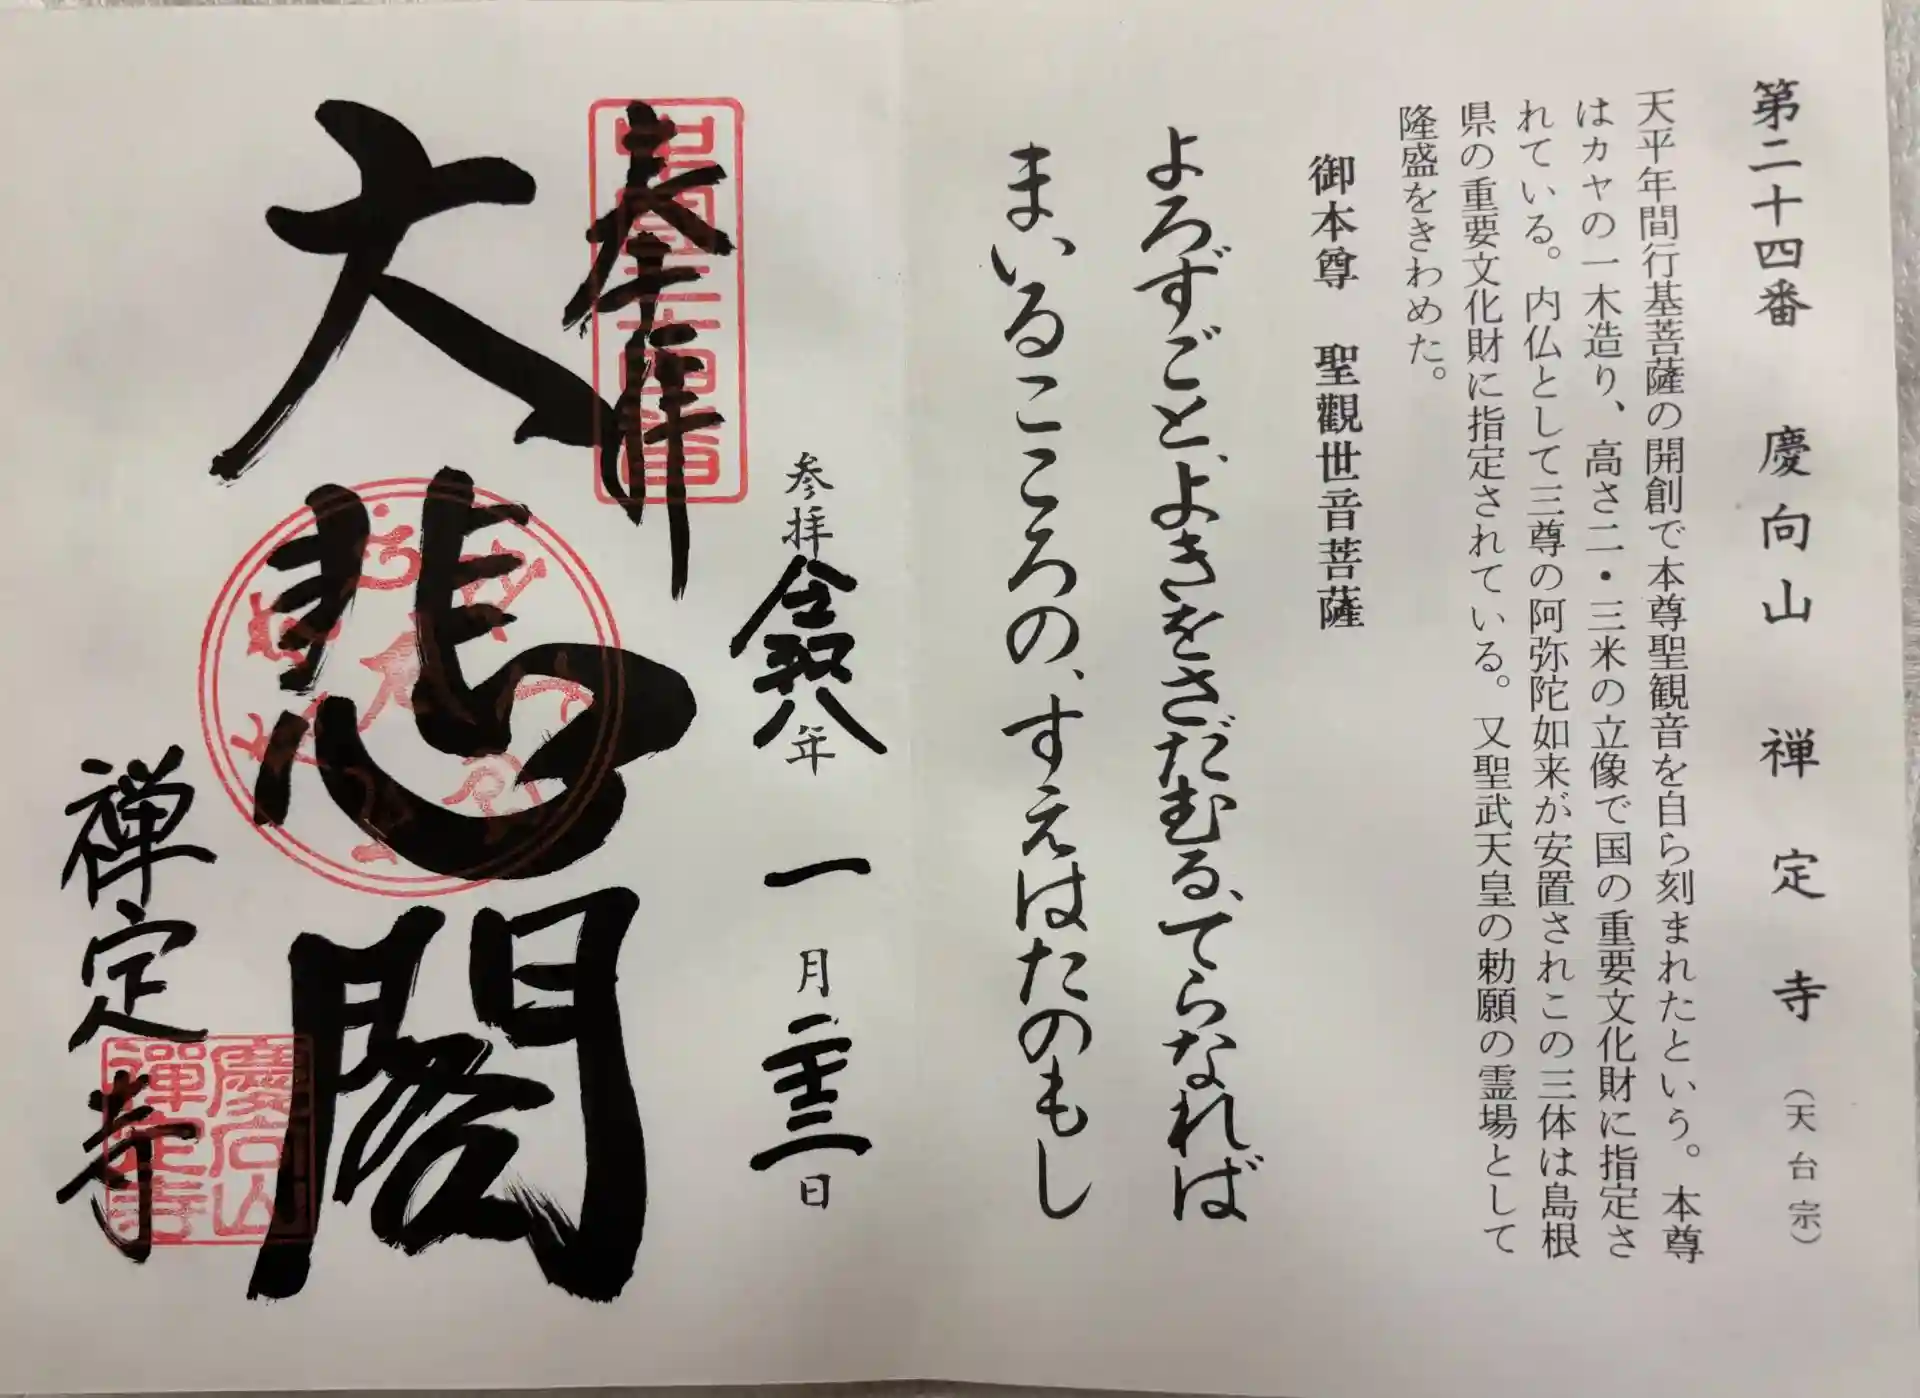 第二十四番　慶向山　禅定寺　（天台宗）
天平年間行基菩薩の開創で本尊聖観音を自ら刻まれたという。本尊
はカヤの一木造り、高さ二・三米の立像で国の重要文化財に指定さ
れている。内仏として三尊の阿弥陀如来が安置されこの三体は島根
県の重要文化財に指定されている。又聖武天皇の勅願の霊場として
隆盛をきわめた。
御本尊　聖觀世音菩薩
よろずごと、よきをさだむる、てらなれば
まいるこころの、すえはたのもし
参拝令和八年一月二十三日
奉拝
中國二十四番
大悲閣
禅定寺
慶向山
禪定寺